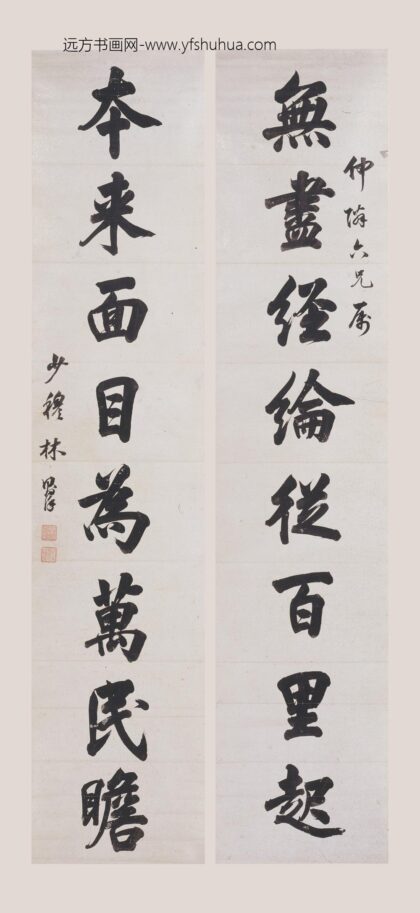 远方书画网-www.yfshuhua.com
仲隣六兄属
無盡经綸從百里起
本来面目為萬民瞻
少穆林則徐